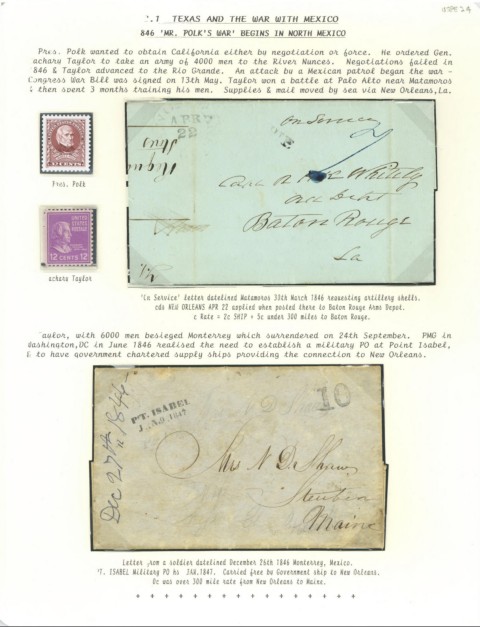 .1 TEXAS AND THE WAR WITH MEXICO
846 'MR. POLK'S WAR' BEGINS IN NORTH MEXICO
Pres. Polk wanted to obtain California either by negotiation or force. He ordered Gen.
achary Taylor to take an army of 4000 men to the River Nunces. Negotiations failed in
846 & Taylor advanced to the Rio Grande. An attack by a Mexican patrol began the war -
Congress War Bill was signed on 13th May. Taylor won a battle at Palo Alto near Matamoros
& then spent 3 months training his men. Supplies & mail moved by sea via New Orleans,La.
CENTS
Pres. Polk
UNITED
STATES
POSTAGE
12 CENTS 12
achary Taylor
APR
22
On Service
Baton Rouge
La
'On Service' letter datelined Matamoros 30th March 1846 requesting artillery shells.
cds NEW ORLEANS APR 22 applied when posted there to Baton Rouge Arms Depot.
c Rate = 2c SHIP + 5c under 300 miles to Baton Rouge.
Taylor, with 6000 men besieged Monterrey which surrendered on 24th September. PMG in
Washington,DC in June 1846 realised the need to establish a military PO at Point Isabel,
& to have government chartered supply ships providing the connection to New Orleans.
PT. ISABEL
JAN 1847
10
Dec 27th 1846
Mrs N D
Steuben
Maine
Letter from a soldier datelined December 26th 1846 Monterrey, Mexico.
PT. ISABEL Military PO hs JAN,1847. Carried free by Government ship to New Orleans.
0c was over 300 mile rate from New Orleans to Maine.